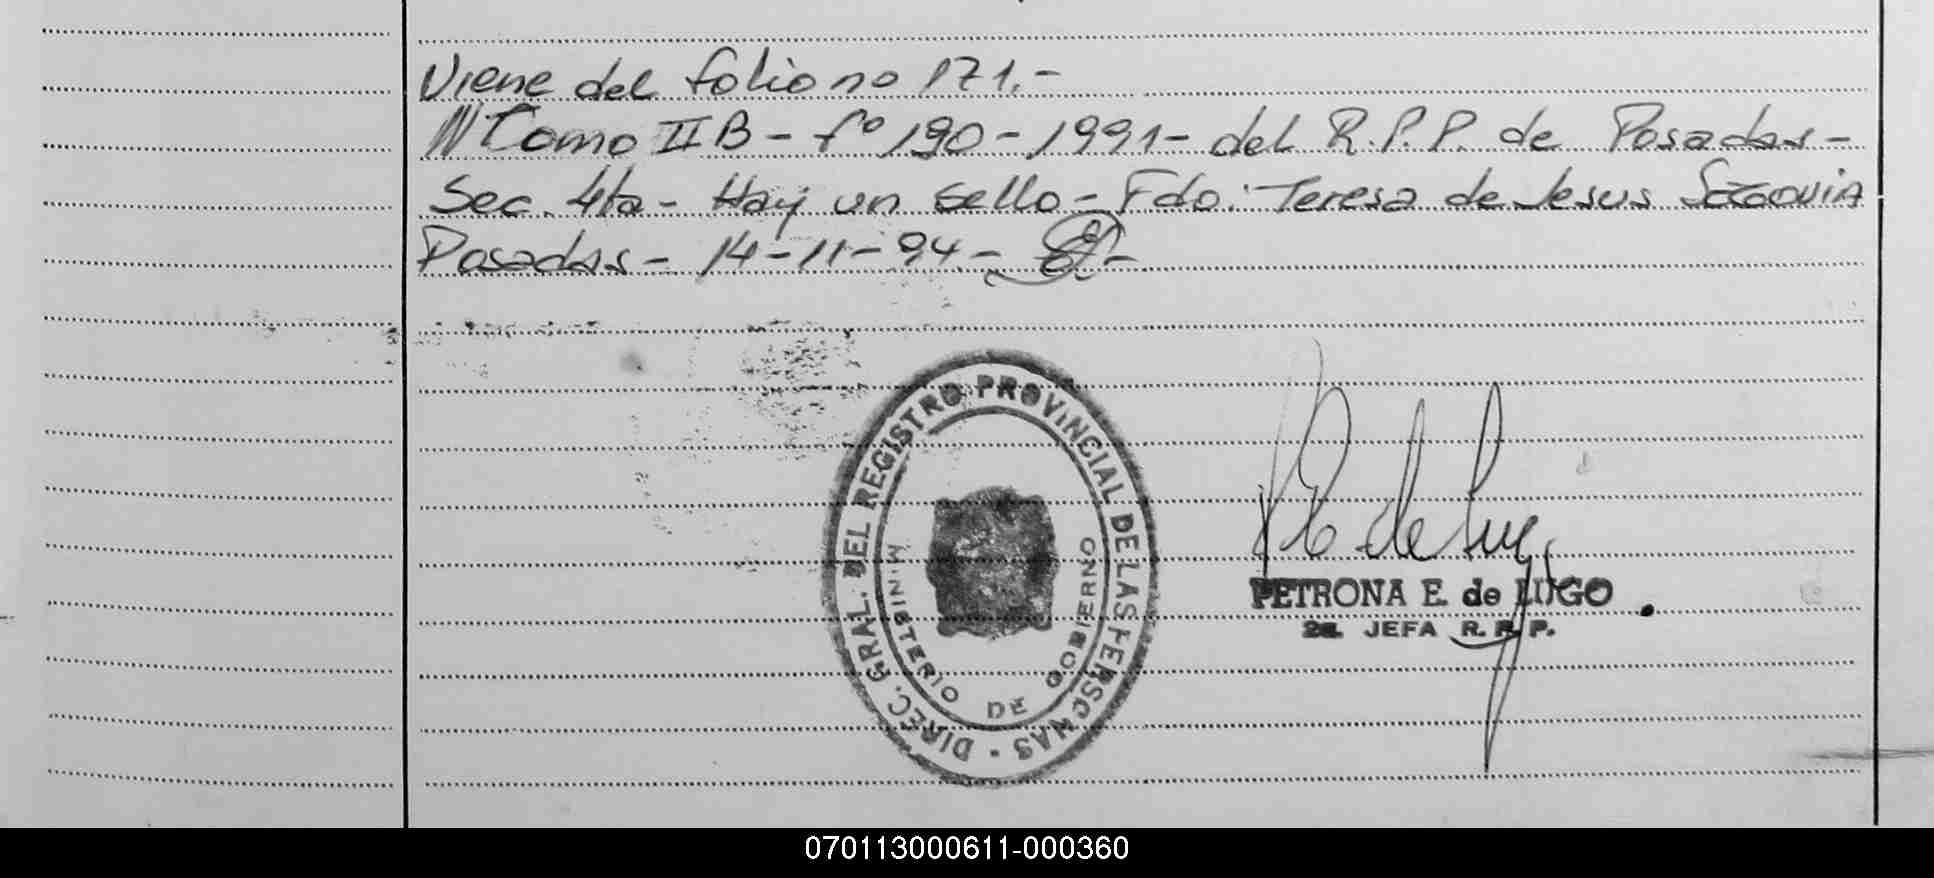 Viene del folio no 171.-
Tomo II B - fº 190 - 1991 - del R.P.P. de Posadas -
Sec. 4ta - Hay un sello - Fdo: Teresa de Jesus
Posadas - 14-11-94.-
DIREC. GRAL. DEL REGISTRO PROVINCIAL DE LAS PERSONAS
MINISTERIO DE GOBIERNO
PETRONA E. de LUGO
2a. JEFA R. R. P.
070113000611-000360